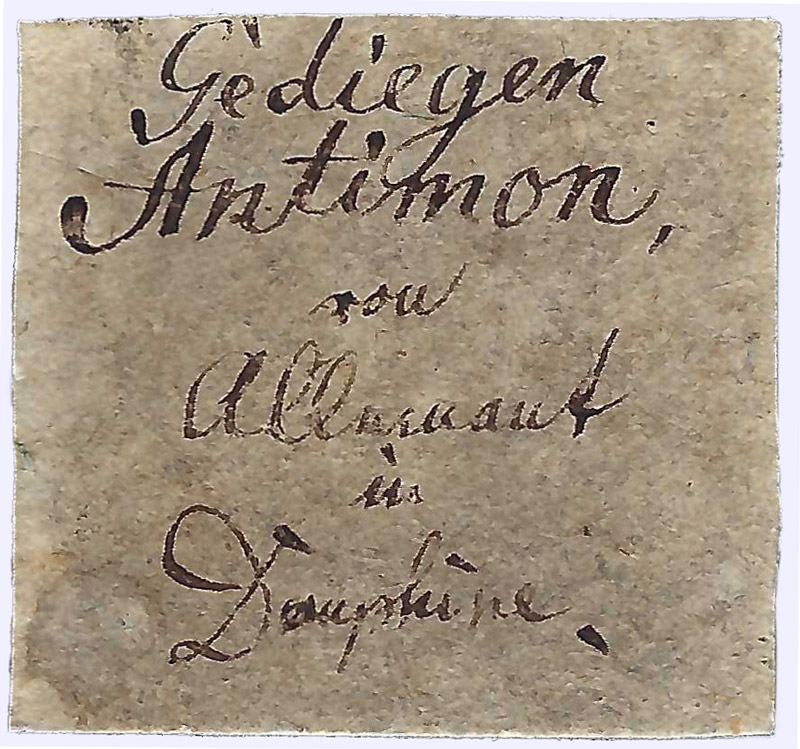 Gediegen
Antimon,
von
Allemant
in
Dauphine.